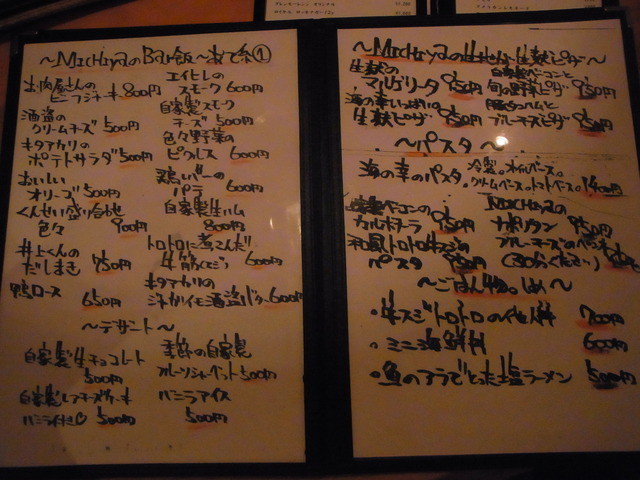 ~MICHIYAのBar飯~あて系①
お肉屋さんの
ビーフジャーキー 800円
エイヒレの
スモーク 600円
酒盗の
クリームチーズ 500円
自家製スモーク
チーズ 500円
キタアカリの
ポテトサラダ 500円
色々野菜の
ピクルス 600円
おいしい
オリーブ 500円
鶏レバーの
パテ 600円
くんせい盛り合わせ
色々 900円
自家製生ハム
800円
井上くんの
だしまき 750円
トロトロに煮こんだ
牛筋 600円
鴨ロース 650円
キタアカリの
酒盗バター 600円
~デザート~
自家製生チョコレート
500円
季節の自家製
フルーツシャーベット 500円
自家製レアチーズケーキ
バニラ付き♡ 500円
バニラアイス
500円
~MICHIYAの生地が生麩ピザ~
生麩の
マルゲリータ 950円
自家製ベーコンと
旬の野菜ピザ 950円
海の幸いっぱいの
生麩ピザ 950円
生ハムと
ブルーチーズピザ 950円
~パスタ~
海の幸のパスタ。冷製。オイルベース。
クリームベース。トマトベース。 1400円
自家製ベーコンの
カルボナーラ 950円
MICHIYAの
ナポリタン 950円
和風トロトロ牛スジの
パスタ
ブルーチーズのペンネ
(30分ください)
~ごはん物。〆~
・牛スジトロトロの他人丼 700円
・ミニ海鮮丼 600円
・魚のアラでとった塩ラーメン 500円